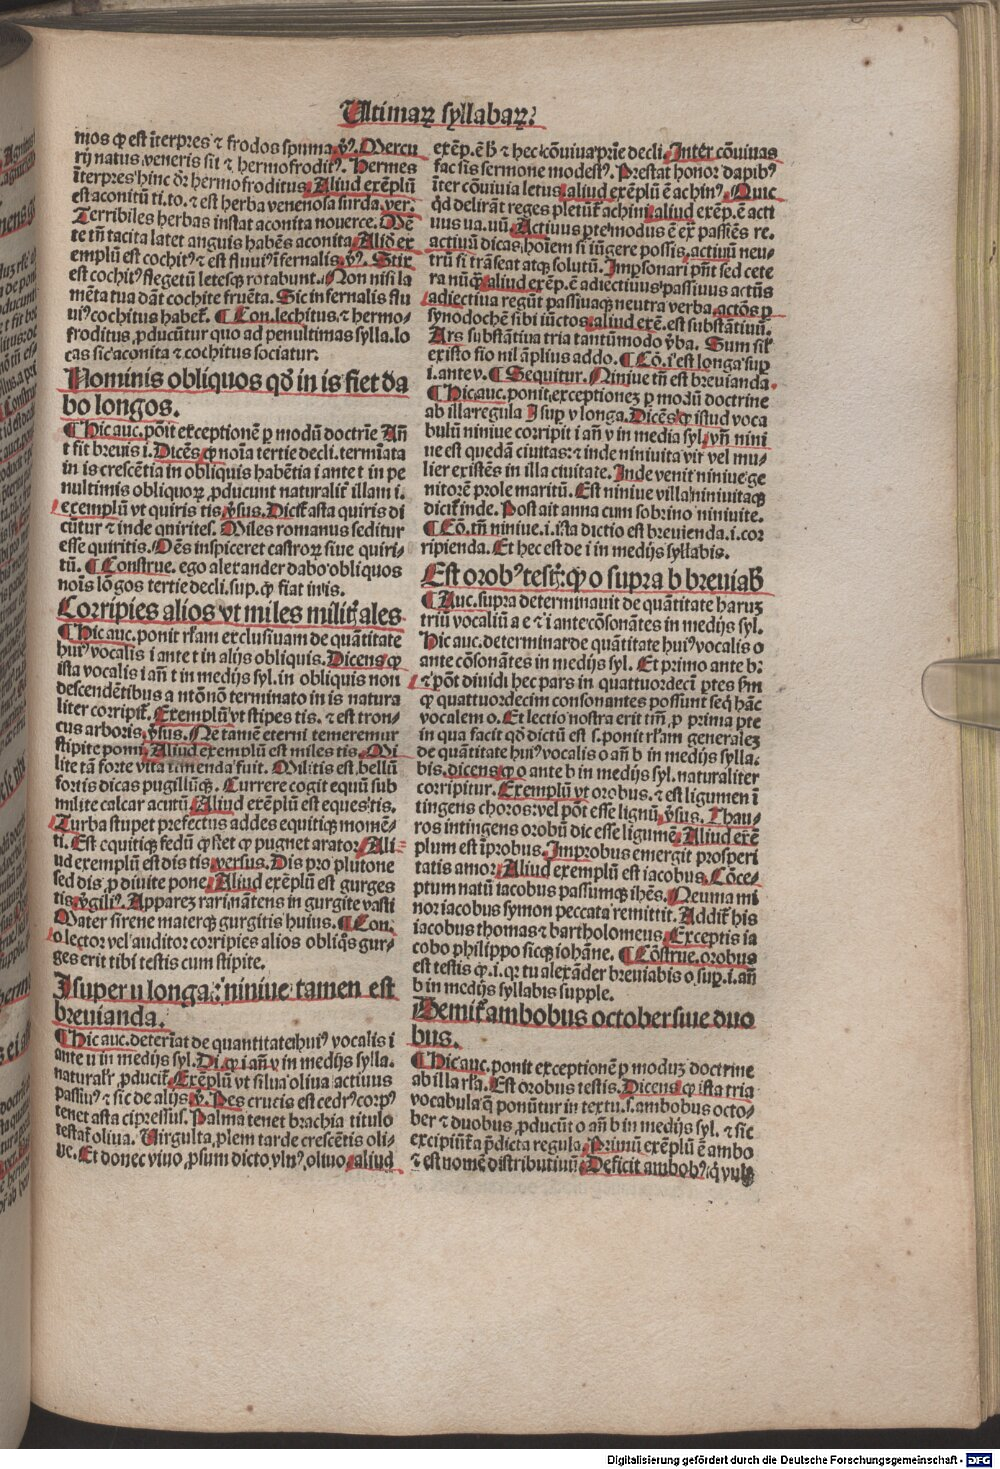 Ultimaꝝ syllabaꝝ.
mos ꝙ est īterpres ⁊ frodos spuma. v̓ꝰ. Mercu
rij natus veneris fit ⁊ hermofroditꝰ. Hermes
īterpres hinc dr̄ hermofroditus. Aliud exēplū
est aconitū ti. to. ⁊ est herba venenosa surda. ver.
Terribiles herbas instat aconita nouerce. Mē
te tn̄ tacita latet anguis habēs aconita. Aliđ ex
emplū est cochitꝰ ⁊ est fluuiꝰ īfernalis. v̓ꝰ. Stix
est cochitꝰ flegetū letesqꝫ rotabunt. Non nisi la
mēta tua dāt cochite fruēta. Sic infernalis flu
uiꝰ cochitus habet̄. ¶ Con. lechitus ⁊ hermo-
froditus ꝓducūtur quo ad penultimas sylla. lo
cas sic aconita ⁊ cochitus sociatur.
Nominis obliquos qđ in is fiet da
bo longos.
¶ Hic auc. pōit exceptionē ꝑ modū doctrīe An̄
t fit breuis i. Dicēs ꝙ noīa tertie decli. termīata
in is crescētia in obliquis habētia i ante t in pe
nultimis obliquoꝝ ꝓducunt naturalit̄ illam i.
exemplū vt quiris tis v̓sus. Dict̄ asta quiris di
cūtur ⁊ inde quirites. Miles romanus seditur
esse quiritis. Oēs inspiceret castroꝝ siue quiri-
tū. ¶ Construe. ego alexander dabo obliquos
noīs lōgos tertie decli. sup. ꝙ fiat in is.
Corripies alios vt miles milit̄ ales
¶ Hic auc. ponit rl̄am exclusiuam de quātitate
huiꝰ vocalis i ante t in alijs obliquis. Dicens ꝙ
ista vocalis i an̄ t in medijs syl. in obliquis non
descendētibus a nōnō terminato in is natura
liter corripit̄. Exemplū vt stipes tis. ⁊ est tron-
cus arboris. v̓sus. Ne tamē eterni temeremur
stipite pomi. Aliud exemplū est miles tis. Mi
lite tā forte vita timenda fuit. Militis est bellū
fortis dicas pugillūqꝫ. Currere cogit equū sub
milite calcar acutū. Aliud exēplū est eques tis.
Turba stupet prefectus addes equitiqꝫ momē-
ti. Est equitiqꝫ fedū ꝙ flet ꝙ pugnet arator. Ali-
ud exemplū est dis tis versus. Dis pro plutone
sed dis ꝓ diuite pone. Aliud exēplū est gurges
tis v̓giliꝰ. Apparet rari nātens in gurgite vasti
Mater sirene materqꝫ gurgitis huius. ¶ Con.
o lector vel auditor corripies alios obliq̄s gur-
ges erit tibi testis cum stipite.
I super u longa: niniue tamen est
breuianda.
¶ Hic auc. deter̄iat de quantitate huiꝰ vocalis i
ante u in medijs syl. Di. ꝙ i an̄ v in medijs sylla.
naturalr̄ ꝓducit̄. Exēplū vt silua oliua actiuus
passiuꝰ ⁊ sic de alijs v̓. Pes crucis est cedrꝰ corpꝰ
tenet asta cipressus. Palma tenet brachia titulo
testat̄ oliua. Virgulta ꝓlem tarde crescētis oli-
ue. Et donec viuo ꝓsum dicto vlnꝰ oliuo. aliud
exēp. ē hˀ ⁊ hec cōuiua prīe decli. Inter cōuiuas
fac sīs sermone modestꝰ. Prestat honor dapibꝰ
īter cōuiuia letus. aliud exēplū ē achinꝰ. Quic
qđ delirāt reges pletūt̄ achiui. aliud exēp. ē acti
uus ua. uū. Actiuus ꝑte modus ē ex passiēs re.
actiuū dicas hoīem si iūgere possis. actiuū neu-
trū si trāseat atqꝫ solutū. Impersonari pn̄t sed cete
ra nūꝙ aliud exēp. ē adiectiuus passiuus actūs
adiectiua regūt passiuaqꝫ neutra verba. actōs ꝑ
synodochē sibi iūctos. aliud exē. est substātiuū.
Ars substātiua tria tantūmodo v̓ba. Sum sil̄
existo fio nil āplius addo. ¶ Cō. i est longa sup
i. ante v. ¶ Sequitur. Niniue tn̄ est breuianda.
¶ Hic auc. ponit exceptionez ꝑ modū doctrine
ab illa regula I sup v longa. Dicēs ꝙ istud voca
bulū niniue corripit i an̄ v in media syl. vn̄ nini
ue est quedā ciuitas: ⁊ inde niniuita vir vel mu-
lier existēs in illa ciuitate. Inde venit niniue ge
nitorē prole maritū. Est niniue villa niniuitaqꝫ
dicit̄ inde. Post ait anna cum sobrino niniuite.
¶ Cō. tn̄ niniue. i. ista dictio est breuienda. i. cor
ripienda. Et hec est de i in medijs syllabis.
Est orobꝰ test̄: ꝙ o supra b breuiab̄
¶ Auc. supra determinauit de quātitate haruꝫ
triū vocaliū a e ⁊ i ante cōsonātes in medijs syl.
Hic auc. determinat de quātitate huiꝰ vocalis o
ante cōsonātes in medijs syl. Et primo ante b:
⁊ pōt diuidi hec pars in quattuordecī ꝑtes scd̄m
ꝙ quattuordecim consonantes possūnt seq̄ hāc
vocalem o. Et lectio nostra erit tm̄ ꝓ prima ꝑte
in qua facit qđ dictū est s. ponit rl̄am generalez
de quātitate huiꝰ vocalis o an̄ b in medijs sylla-
bis. dicens ꝙ o ante b in medijs syl. naturaliter
corripitur. Exemplū vt orobus. ⁊ est ligumen ī
tingens choros: vel pōt esse lignū. v̓sus. Thau-
ros intingens orobū dic esse ligumē. Aliud exē
plum est īprobus. Improbus emergit prosperi
tatis amor. Aliud exemplū est iacobus. Cōce-
ptum natū iacobus passumqꝫ ihēs. Neuma mi
nor iacobus symon peccata remittit. Addit̄ his
iacobus thomas ⁊ bartholomeus. Exceptis ia
cobo philippo sicqꝫ iohāne. ¶ Cōstrue. orobus
est testis ꝙ. i. qꝛ tu alexāder breuiabis o sup. i. an̄
b in medijs syllabis supple.
Demit̄ ambobus october siue duo
bus.
¶ Hic auc. ponit exceptionē ꝑ moduꝫ doctrine
ab illa rl̄a. Est orobus testis. Dicens ꝙ ista tria
vocabula q̄ ponūtur in textu. s. ambobus octo-
ber ⁊ duobus ꝓducūt o an̄ b in medijs syl. ⁊ sic
excipiūt̄ a p̄dicta regula. Primū exēplū ē ambo
⁊ est nomē distributiuū. Deficit ambobꝰ q̇ vulꝫ
Digitalisierung gefördert durch die Deutsche Forschungsgemeinschaft - DFG